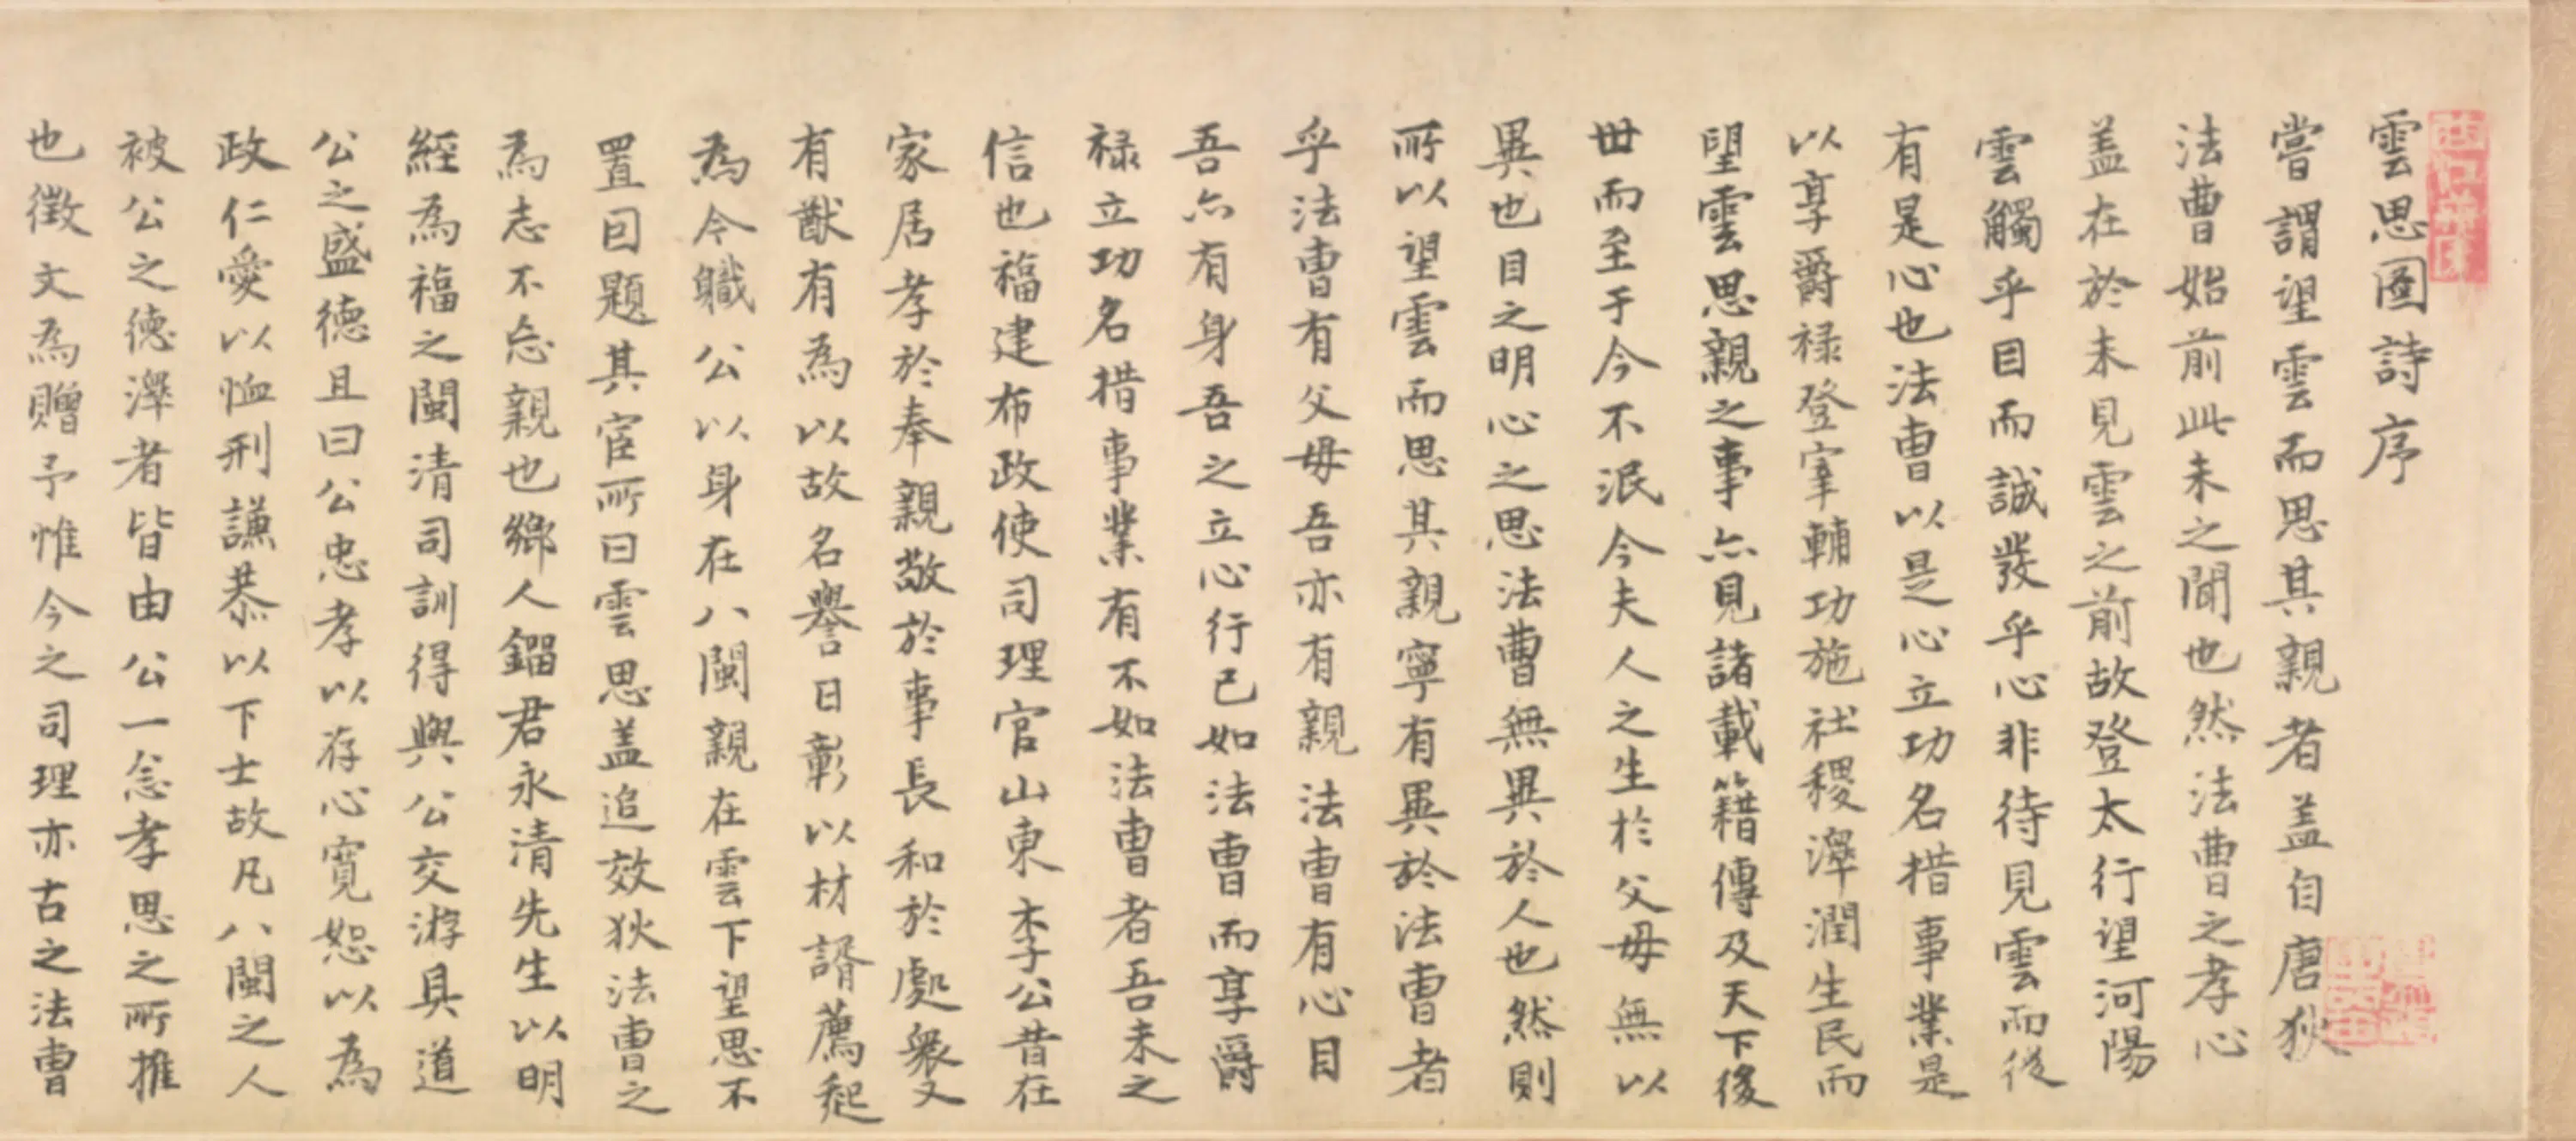 雲思圖詩序
嘗謂望雲而思其親者蓋自唐狄
法曹始前此未之聞也然法曹之孝心
盖在於未見雲之前故登太行望河陽
雲觸乎目而誠發乎心非待見雲而後
有是心也法曹以是心立功名措事業是
以享爵禄登宰輔功施社稷澤潤生民而
望雲思親之事亦見諸載籍傳及天下後
世而至于今不泯今夫人之生於父母無以
異也目之明心之思法曹無異於人也然則
所以望雲而思其親寧有異於法曹者
乎法曹有父母吾亦有親法曹有心目
吾亦有身吾之立心行己如法曹而享爵
禄立功名措事業有不如法曹者吾未之
信也福建布政使司理官山東李公昔在
家居孝於奉親敬於事長和於處衆又
有猷有為以故名譽日彰以材諝薦起
為今職公以身在八閩親在雲下望思不
置回題其宦所曰雲思盖追效狄法曹之
為志不忘親也鄉人鎦君永清先生以明
經為福之閩清司訓得與公交游具道
公之盛德且曰公忠孝以存心寬恕以為
政仁愛以恤刑謙恭以下士故凡八閩之人
被公之德澤者皆由公一念孝思之所推
也徵文為贈予惟今之司理亦古之法曹